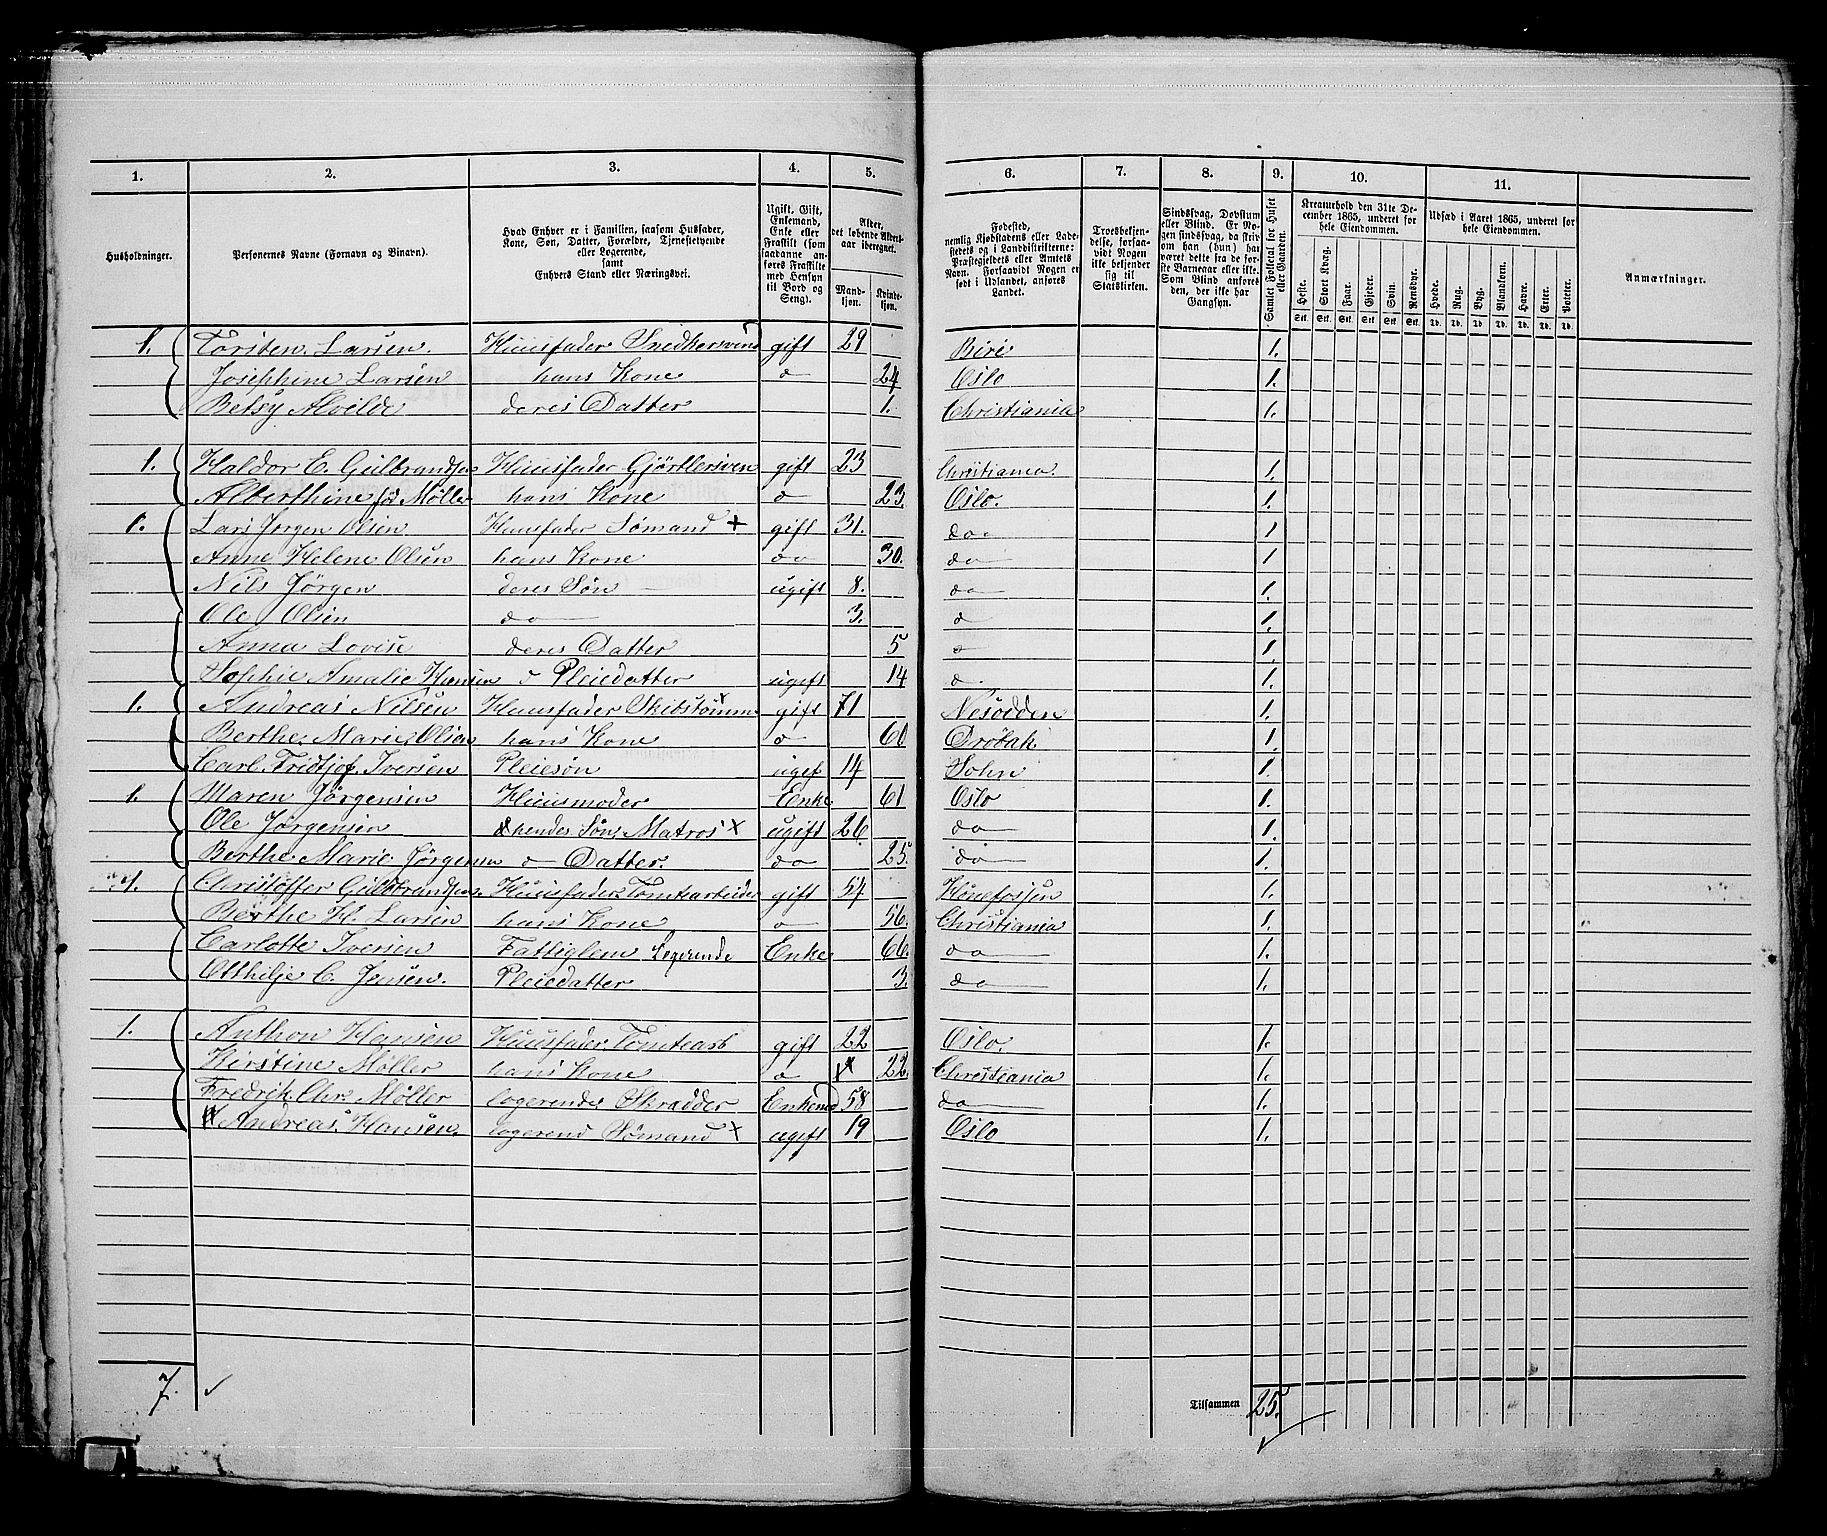 1. 2. 3. 4. 5. 6. 7. 8. 9. 10. 11.
Husholdninger.
Personernes Navne (Fornavn og Binavn).
Hvad Enhver er i Familien, saasom Husfader,
Kone, Søn, Datter, Forældre, Tjenestetyende
eller Logerende,
samt
Enhvers Stand eller Næringsvei.
Ugift, Gift,
Enkemand,
Enke eller
Fraskilt (som
saadanne an-
føres Fraskilte
med Hensyn
til Bord og
Seng).
Alder,
det løbende Alders-
aar iberegnet.
Mand-
kjøn.
Kvinde-
kjøn.
Fødested,
nemlig Kjøbstadens eller Lade-
stedets og i Landdistrikterne:
Præstegjeldets eller Amtets
Navn. Forsaavidt Nogen er
født i Udlandet, anføres
Landet.
Troesbekjen-
delse, forsaa-
vidt Nogen
ikke bekjender
sig til
Statskirken.
Sindssvag, Døvstum
eller Blind. Er No-
gen sindssvag, da skriv
om han (hun) har
været dette fra de før-
ste Barneaar eller ikke.
Som Blind anføres
den, der ikke har
Gangsyn.
Samlet Folketal for Huset
eller Gaarden.
Kreaturhold den 31te De-
cember 1865, underet for
hele Eiendommen.
Heste. Stort Kvæg. Faar. Gjeder. Svin. Rensdyr.
Stk. Stk. Stk. Stk. Stk. Stk.
Udsæd i Aaret 1865, underet for
hele Eiendommen.
Hvede. Rug. Byg. Blandkorn. Havre. Erter. Poteter.
Td. Td. Td. Td. Td. Td. Td.
Anmærkninger.
1. Torsten Larsen. Huusfader Snedkersvend gift 29 Biri 1.
Josephine Larsen hans Kone do 24 Oslo 1.
Betsy Alvilde deres Datter 1. Christiania 1.
1. Haldor E. Gulbrandsen Huusfader Gjörtlersven gift 23 Christiania. 1.
Alberthine fød Møller hans Kone do 23. Oslo. 1.
1. Lars Jørgen Olsen Huusfader Sømand + gift 31. do 1
Anne Helene Olsen hans Kone do 30. do 1
Nils Jørgen deres Søn ugift 8. do 1.
Ole Olsen do 3. do 1.
Anna Lovise deres Datter 5 do 1.
Sophie Amalie Hansen do Pleiedatter ugift 14 do 1.
1. Andreas Nilsen Huusfader Skibstømmr x gift 71 Nesodden 1.
Berthe Marie Olsen hans Kone do 60 Drøbak 1.
Carl Fridtjof Iversen Pleiesøn ugif 14 Sohn 1.
1. Maren Jørgensen Huusmoder Enke 61 Oslo 1.
Ole Jørgensen hendes Søn, Matros x ugift 26 do 1.
Berthe Marie Jørgensen do Datter. do 25. do 1.
1. Christoffer Gulbrandsen Huusfader Tomtearbeider gift 54 Hönefossen 1.
Berthe H. Larsen hans Kone do 56. Christiania 1.
Carlotte Iversen Fattiglem Logerende Enke 66. do 1.
Otthilje C. Jensen. Pleiedatter 3. do 1.
1. Anthon Hansen Huusfader Tomtearb gift 22 Oslo. 1.
Kirstine Møller hans Kone do 22. Christiania 1.
Fredrik Chr. Møller logerende Skradder Enkemd 58 do 1.
Andreas Hansen. logerend Sømand x ugift 19 Oslo 1.
7. ✓
Tilsammen 25. ✓